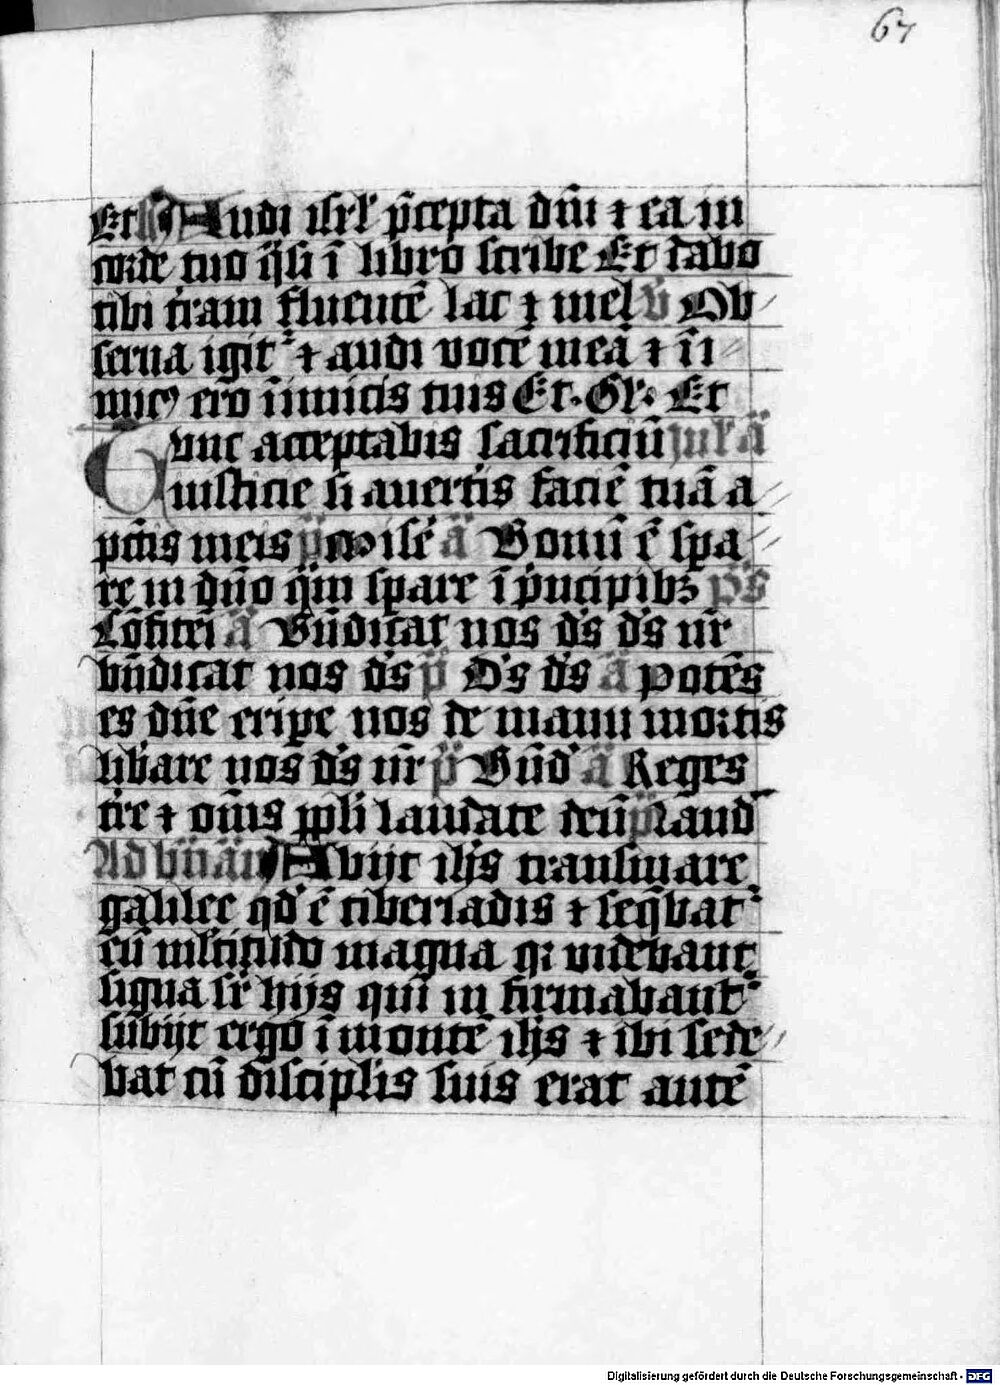 67
Et Audi isrl' p̄cepta dn̄i ⁊ ea in
corde tuo q̄si ī libro scribe Et dabo
tibi t̄ram fluentē lac ⁊ mel v̄ Ob
serua igit᷑ ⁊ audi vocē meā ⁊ īi
micꝰ ero īimicis tuis Et. Gl'. Et
Tunc acceptabis sacrificiū ā
iusticie si auertis faciē tuā a
pctīs meis p̄ Mise ā Bonū ē spa
re in dn̄o q̄m spare ī p̄ncipibꝫ p̄s
Cōfitei ā Bn̄dicat nos d's d's nr̄
bn̄dicat nos d's p̄ D's d's ā Potēs
es dn̄e eripe nos de manu mortis
libare nos d's nr̄ p̄ Bn̄d' ā Reges
tre ⁊ om̄s ppli laudate deū p̄ Laud
Ad bn̄ ān Abijt ihs trans mare
galilee qd' ē tiberiadis ⁊ seq̄bat᷑
eū mltitudo magna qꝛ videbant
signa sr̄ hijs qui in firmabant᷑
subijt ergo ī monte ihs ⁊ ibi sede
bat cū disciplis suis erat autē
Digitalisierung gefördert durch die Deutsche Forschungsgemeinschaft - DFG